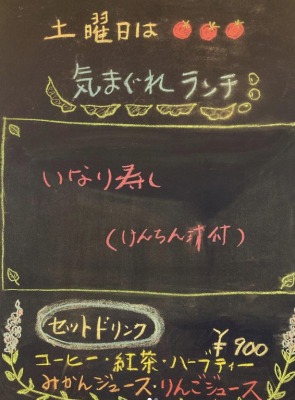 土曜日は
気まぐれランチ
いなり寿し
(けんちん汁付)
セットドリンク
¥900
コーヒー・紅茶・ハーブティー
みかんジュース・りんごジュース